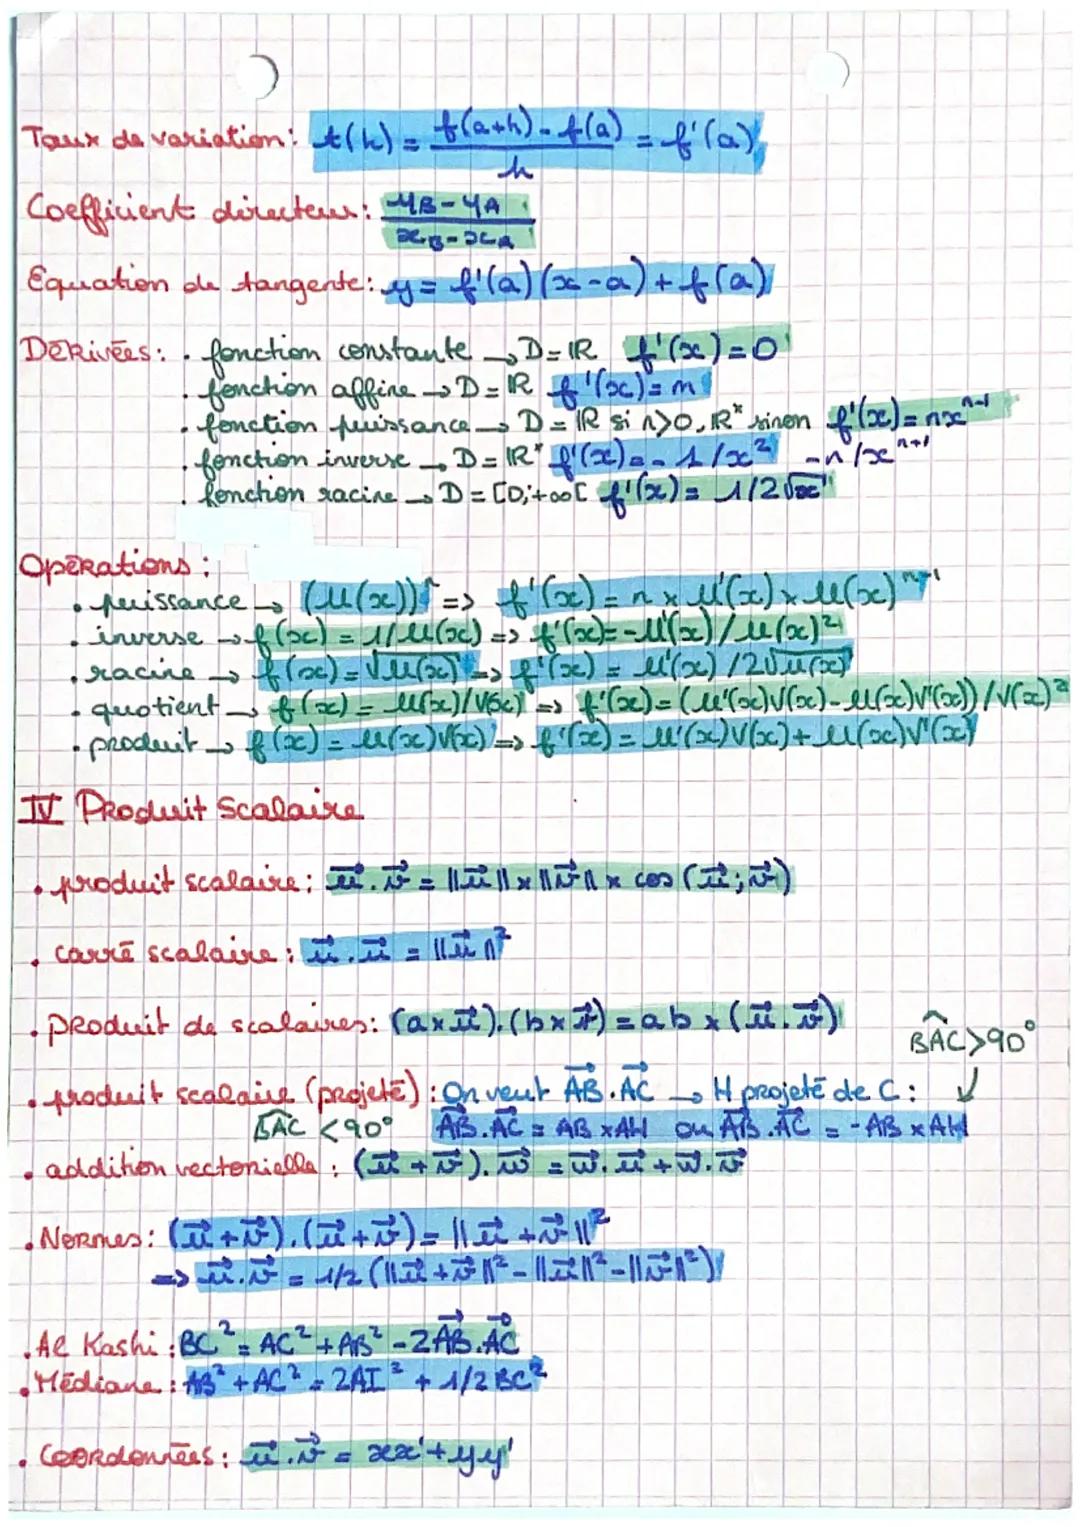 Taux de variation: t(h) = f(a+h) - f(a) / h = f'(a)
Coefficient directeur: yB - yA / xB - xA
Equation de tangente: y = f'(a)(x-a) + f(a)
Dérivées: . fonction constante → D = ℝ f'(x) = 0
. fonction affine → D = ℝ f'(x) = m
. fonction puissance → D = ℝ si n>0, ℝ* sinon f'(x) = nx^n-1
. fonction inverse → D = ℝ* f'(x) = - 1/x² -n/x^n+1
. fonction racine → D = [0;+∞[ f'(x) = 1/2√x
Opérations :
. puissance → (u(x))^n => f'(x) = n × u'(x) × u(x)^n-1
. inverse → f(x) = 1/u(x) => f'(x) = -u'(x)/u(x)²
. racine → f(x) = √u(x) => f'(x) = u'(x)/2√u(x)
. quotient → f(x) = u(x)/v(x) => f'(x) = (u'(x)v(x) - u(x)v'(x))/v(x)²
. produit → f(x) = u(x)v(x) => f'(x) = u'(x)v(x) + u(x)v'(x)
IV Produit Scalaire
. produit scalaire: u⃗.v⃗ = ||u⃗|| × ||v⃗|| × cos (u⃗;v⃗)
. carré scalaire: u⃗.u⃗ = ||u⃗||²
. produit de scalaires: (a×u⃗).(b×v⃗) = ab × (u⃗.v⃗)
BAC > 90°
. produit scalaire (projeté) : On veut AB.AC → H projeté de C : ↓
BAC < 90° AB.AC = AB × AH ou AB.AC = - AB × AH
. addition vectorielle : (u⃗ + v⃗).w⃗ = w⃗.u⃗ + w⃗.v⃗
. Normes: (u⃗+v⃗).(u⃗+v⃗) = ||u⃗+v⃗||²
=> u⃗.v⃗ = 1/2 (||u⃗+v⃗||² - ||u⃗||² - ||v⃗||²)
. Al Kashi : BC² = AC² + AB² - 2AB.AC
. Médiane : AB² + AC² = 2AI² + 1/2 BC²
. Coordonnées : u⃗.v⃗ = xx' + yy'